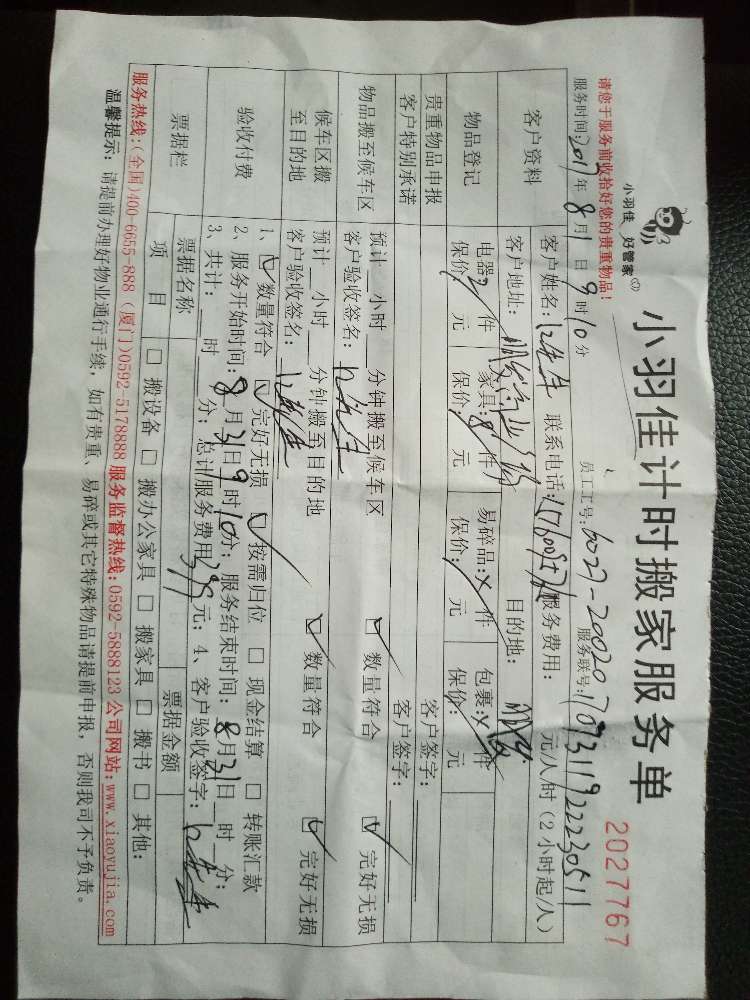 小羽佳计时搬家服务单
2027767
小羽佳 好管家
请您于服务前收拾好您的贵重物品!
员工工号:6027-20020 服务联号:170731192230511
服务时间:2017年8月1日9时10分
客户资料
客户姓名: 联系电话: 服务费用: 元/人/时(2小时起/人)
客户地址: 目的地:
物品登记
电器:2件 家具:8件 易碎品:X件 包裹:X件
保价: 元 保价: 元 保价: 元 保价: 元
贵重物品申报 客户签字:
客户特别承诺 客户签字:
物品搬至候车区
预计__小时__分钟搬至候车区 ☑ 数量符合 ☑ 完好无损
客户验收签名:
候车区搬至目的地
预计__小时__分钟搬至目的地 ☑ 数量符合 ☑ 完好无损
客户验收签名:
验收付费
1、☑ 数量符合 ☑ 完好无损 ☑ 按需归位 □ 现金结算 □ 转账汇款
2、服务开始时间:8月31日9时10分;服务结束时间:8月31日 时 分;
3、共计:__时__分;总计服务费用399元;4、客户验收签字:
票据栏
票据名称 票据金额
项目 □ 搬设备 □ 搬办公家具 □ 搬家具 □ 搬书 □ 其他:
服务热线:(全国)400-6655-888 (厦门)0592-5178888 服务监督热线:0592-5888123 公司网站:www.xiaoyujia.com
温馨提示:请提前办理好物业通行手续,如有贵重、易碎或其它特殊物品请提前申报,否则我司不予负责。